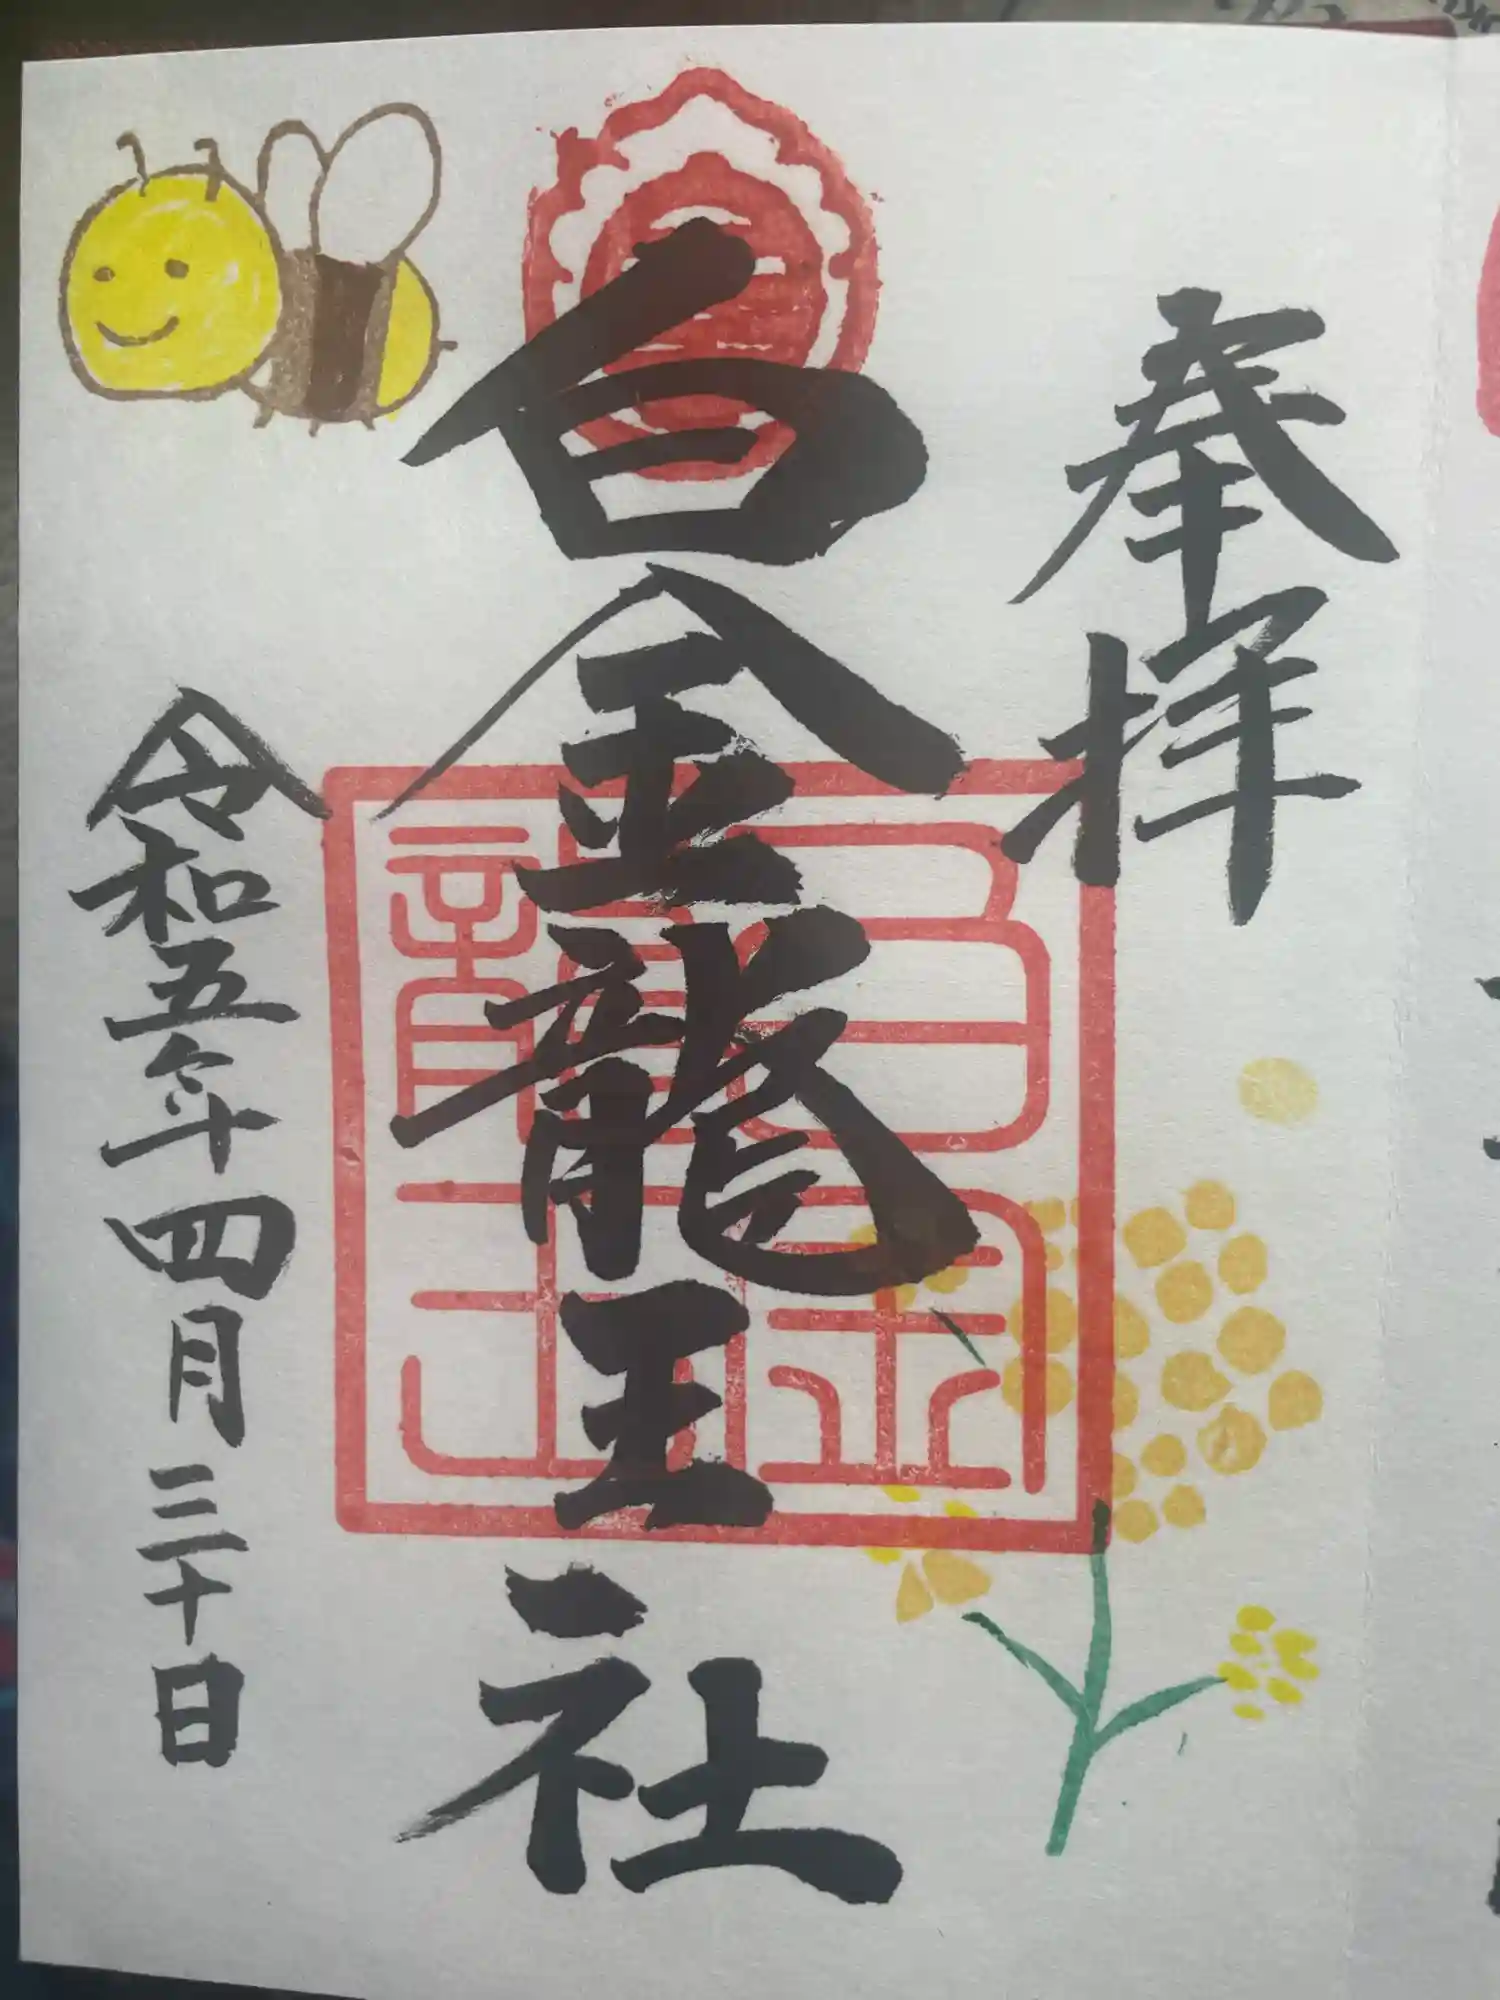 奉拝
白金龍王社
白金龍王
令和五年四月三十日